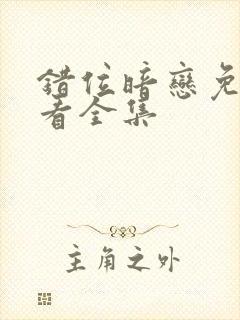 错位暗戀免
看全集
主角之外